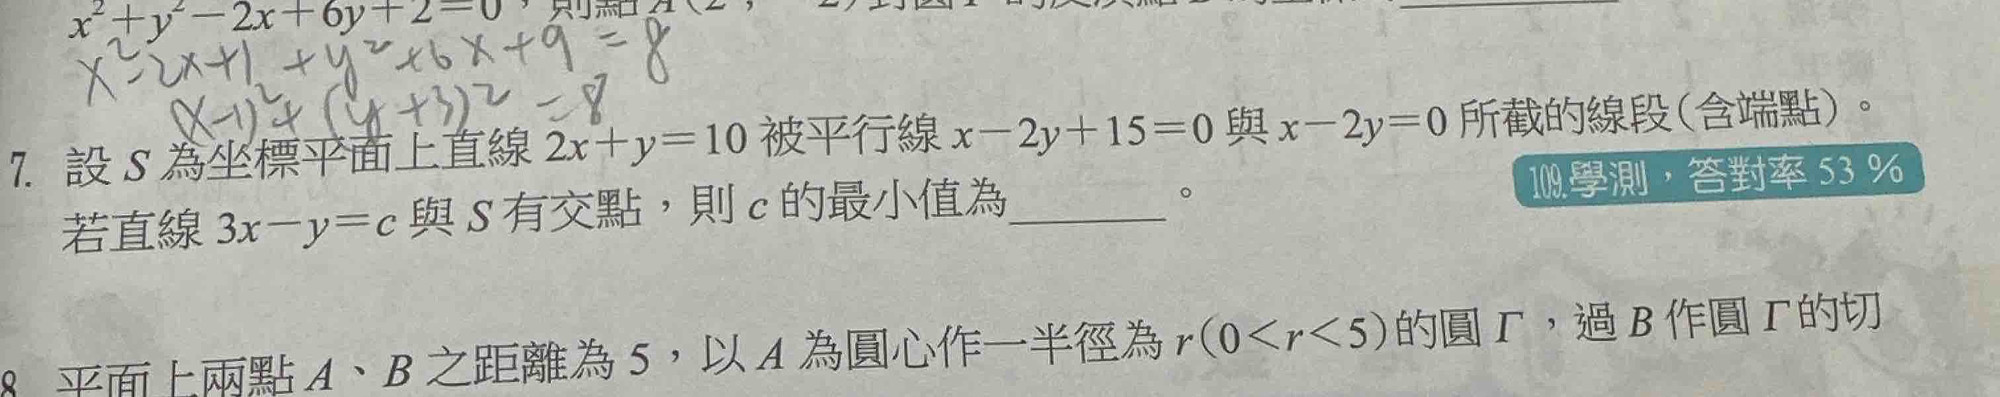 x²+y²−2x+6y+2=0，則點A(2，
x²-2x+1+y²+6x+9=8
(x-1)²+(y+3)²=8
7. 設 S 為坐標平面上直線 2x+y=10 被平行線 x−2y+15=0 與 x−2y=0 所截的線段(含端點)。
109.學測，答對率 53 %
若直線 3x−y=c 與 S 有交點，則 c 的最小值為______。
8 平面上兩點 A、B 之距離為 5，以 A 為圓心作一半徑為 r(0<r<5)的圓 Γ，過 B 作圓 Γ 的切